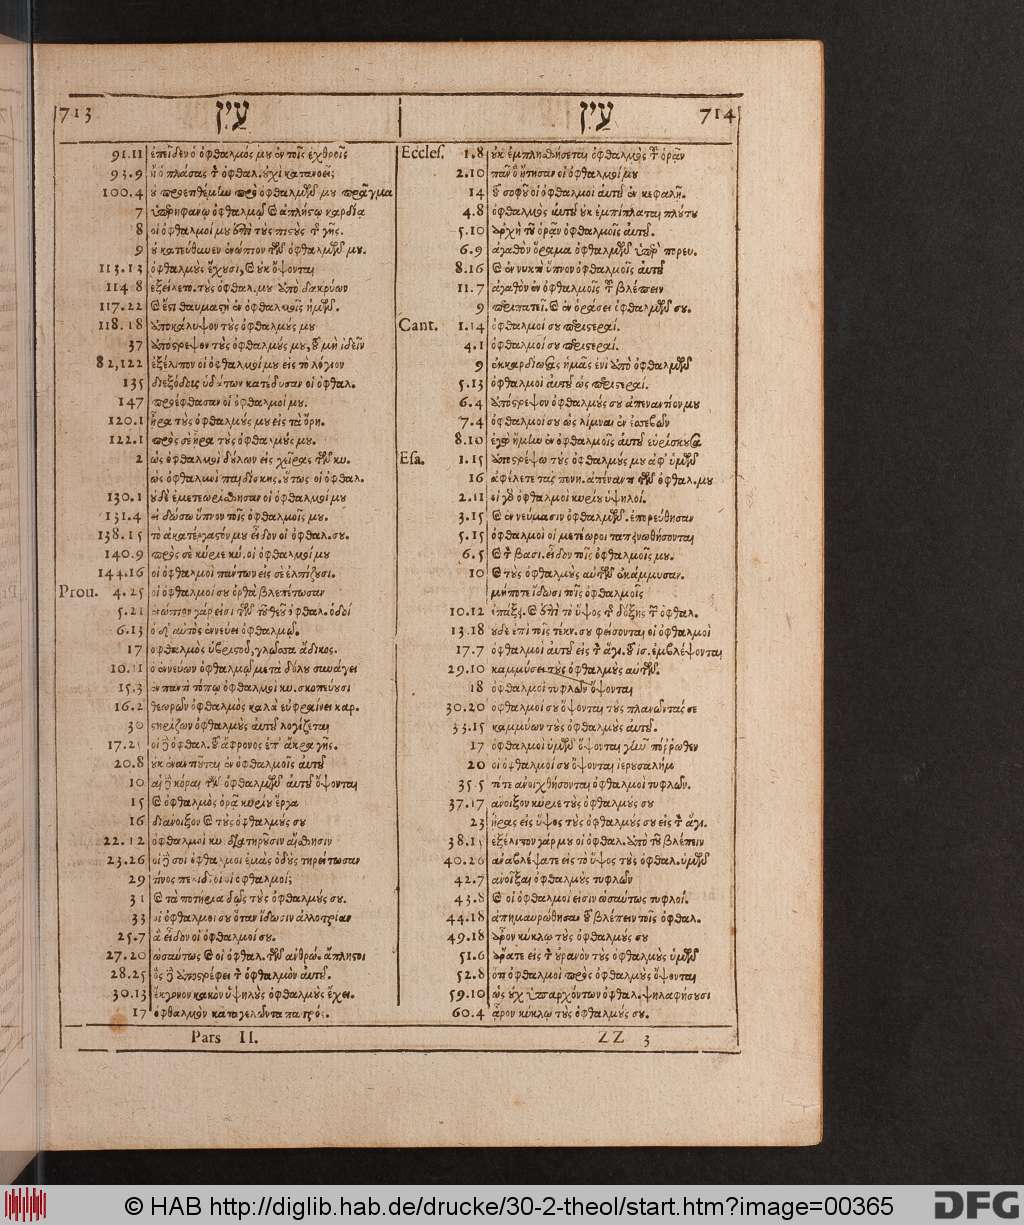 713
עַיִן
91.11 ἐπεῖδεν ὁ ὀφθαλμός μου ἐν τοῖς ἐχθροῖς
93.9 ἢ ὁ πλάσας τ ὀφθαλ. οὐχὶ κατανοεῖ;
100.4 οὐ προεθέμην πρὸ ὀφθαλμῶν μου πρᾶγμα
7 ὑπερηφάνῳ ὀφθαλμῷ καὶ ἀπλήστῳ καρδίᾳ
8 οἱ ὀφθαλμοί μου ἐπὶ τοὺς πιστοὺς τ γῆς.
9 οὐ κατεύθυνεν ἐνώπιον τῶν ὀφθαλμῶν μου.
113.13 ὀφθαλμοὺς ἔχουσι, καὶ οὐκ ὄψονται
114.8 ἐξείλετο. τοὺς ὀφθαλ. μου ἀπὸ δακρύων
117.22 καὶ ἔστι θαυμαστὴ ἐν ὀφθαλμοῖς ἡμῶν.
118.18 ἀποκάλυψον τοὺς ὀφθαλμούς μου
37 ἀπόστρεψον τοὺς ὀφθαλμούς μου, τοῦ μὴ ἰδεῖν
82,122 ἐξέλιπον οἱ ὀφθαλμοί μου εἰς τὸ λόγιον
135 διεξόδους ὑδάτων κατέδυσαν οἱ ὀφθαλ.
147 προέφθασαν οἱ ὀφθαλμοί μου.
120.1 ἦρα τοὺς ὀφθαλμούς μου εἰς τὰ ὄρη.
122.1 πρὸς σὲ ἦρα τοὺς ὀφθαλμούς μου.
2 ὡς ὀφθαλμοὶ δούλων εἰς χεῖρας τῶν κυ.
ὡς ὀφθαλμοὶ παιδίσκης. οὕτως οἱ ὀφθαλ.
130.1 οὐδὲ ἐμετεωρίσθησαν οἱ ὀφθαλμοί μου
131.4 εἰ δώσω ὕπνον τοῖς ὀφθαλμοῖς μου.
138.15 τὸ ἀκατέργαστόν μου εἶδον οἱ ὀφθαλ. σου.
140.9 πρὸς σὲ κύριε κύ. οἱ ὀφθαλμοί μου
144.16 οἱ ὀφθαλμοὶ πάντων εἰς σὲ ἐλπίζουσι.
Prou. 4.25 οἱ ὀφθαλμοί σου ὀρθὰ βλεπέτωσαν
5.21 ἐνώπιον γάρ εἰσι τῶν τοῦ θεοῦ ὀφθαλ. ὁδοί
6.13 ὁ δ' αὐτὸς ἐννεύει ὀφθαλμῷ.
17 ὀφθαλμὸς ὑβριστοῦ, γλῶσσα ἄδικος.
10.11 ὁ ἐννεύων ὀφθαλμῷ μετὰ δόλου συνάγει
15.3 ἐν παντὶ τόπῳ ὀφθαλμοὶ κυ. σκοπεύουσι
16.2 θεωρῶν ὀφθαλμὸς καλὰ εὐφραίνει καρ.
30 στηρίζων ὀφθαλμοὺς αὐτοῦ λογίζεται
17.25 οἱ δὲ ὀφθαλ. τοῦ ἄφρονος ἐπ' ἄκρα γῆς.
20.8 οὐκ ἐναντιοῦται ἐν ὀφθαλμοῖς αὐτοῦ
10
15 καὶ ὀφθαλμὸς ὁρᾷ κυρίου ἔργα
16 διάνοιξον καὶ τοὺς ὀφθαλμούς σου
22.12 ὀφθαλμοὶ κυ. διατηροῦσιν αἴσθησιν
23.26 οἱ δὲ σοὶ ὀφθαλμοὶ ἐμὰς ὁδοὺς τηρείτωσαν
29 τίνος πελιδνοὶ οἱ ὀφθαλμοί;
31 καὶ τὰ ποτήρια δῷς τοὺς ὀφθαλμούς σου.
33 οἱ ὀφθαλμοί σου ὅταν ἴδωσιν ἀλλοτρίαν
25.7 ἃ εἶδον οἱ ὀφθαλμοί σου.
27.20 ὡσαύτως καὶ οἱ ὀφθαλ. τῶν ἀνθρώ. ἄπληστοι
28.25 ὃς δὲ ἀποστρέφει τ ὀφθαλμὸν αὐτοῦ.
30.13 ἔκγονον κακὸν ὑψηλοὺς ὀφθαλμοὺς ἔχει.
17 ὀφθαλμὸν καταγελῶντα πατρός.
Pars II.
עַיִן
714
Eccles. 1.8 οὐκ ἐμπλησθήσεται ὀφθαλμὸς τοῦ ὁρᾶν
2.10 πᾶν ὃ ᾔτησαν οἱ ὀφθαλμοί μου
14 τοῦ σοφοῦ οἱ ὀφθαλμοὶ αὐτοῦ ἐν κεφαλῇ.
4.8 ὀφθαλμὸς αὐτοῦ οὐκ ἐμπίπλαται πλούτου
5.10 ἀρχὴ τοῦ ὁρᾶν ὀφθαλμοῖς αὐτοῦ.
6.9 ἀγαθὸν ὅραμα ὀφθαλμῶν ὑπὲρ πορευ.
8.16 καὶ ἐν νυκτὶ ὕπνον ὀφθαλμοῖς αὐτοῦ
11.7 ἀγαθὸν ἐν ὀφθαλμοῖς τοῦ βλέπειν
9 περιπάτει. καὶ ἐν ὁράσει ὀφθαλμῶν σου.
Cant. 1.14 ὀφθαλμοί σου περιστεραί.
4.1 ὀφθαλμοί σου περιστεραί.
9 ἐκαρδίωσας ἡμᾶς ἑνὶ ἀπὸ ὀφθαλμῶν
5.13 ὀφθαλμοὶ αὐτοῦ ὡς περιστεραί.
6.4 ἀπόστρεψον ὀφθαλμούς σου ἀπεναντίον μου
7.4 ὀφθαλμοί σου ὡς λίμναι ἐν ἐσεβὼν
8.10 ἐγὼ ἤμην ἐν ὀφθαλμοῖς αὐτοῦ εὑρίσκουσα
Esa. 1.15 ἀποστρέψω τοὺς ὀφθαλμούς μου ἀφ' ὑμῶν
16 ἀφέλετε τὰς πονη. ἀπέναντι τῶν ὀφθαλ. μου
2.11 οἱ γὰρ ὀφθαλμοὶ κυρίου ὑψηλοί.
3.15 καὶ ἐν νεύμασιν ὀφθαλμῶν. ἐπορεύθησαν
5.15 ὀφθαλμοὶ οἱ μετέωροι ταπεινωθήσονται
6.5 καὶ τ βασι. εἶδον τοῖς ὀφθαλμοῖς μου.
10 καὶ τοὺς ὀφθαλμοὺς αὐτῶν ἐκάμμυσαν.
μήποτε ἴδωσι τοῖς ὀφθαλμοῖς
10.12 ἐπάξει. καὶ ἐπὶ τὸ ὕψος τ δόξης τ ὀφθαλ.
13.18 οὐδὲ ἐπὶ τοῖς τέκν. σου φείσονται οἱ ὀφθαλμοὶ
17.7 ὀφθαλμοὶ αὐτοῦ εἰς τ ἅγι. τοῦ ἰσ. ἐμβλέψονται
29.10 καμμύσει τοὺς ὀφθαλμοὺς αὐτῶν.
18 ὀφθαλμοὶ τυφλῶν ὄψονται
30.20 ὀφθαλμοί σου ὄψονται τοὺς πλανῶντάς σε
33.15 καμμύων τοὺς ὀφθαλμοὺς αὐτοῦ.
17 ὀφθαλμοὶ ὑμῶν ὄψονται γῆν πόρρωθεν
20 οἱ ὀφθαλμοί σου ὄψονται ἱερουσαλὴμ
35.5 τότε ἀνοιχθήσονται ὀφθαλμοὶ τυφλῶν.
37.17 ἄνοιξον κύριε τοὺς ὀφθαλμούς σου
23 ἦρας εἰς ὕψος τοὺς ὀφθαλμούς σου εἰς τ ἅγι.
38.15 ἐξέλιπον γάρ μου οἱ ὀφθαλ. ἀπὸ τοῦ βλέπειν
40.26 ἀναβλέψατε εἰς τὸ ὕψος τοὺς ὀφθαλ. ὑμῶν
42.7 ἀνοῖξαι ὀφθαλμοὺς τυφλῶν
43.8 καὶ οἱ ὀφθαλμοί εἰσιν ὡσαύτως τυφλοί.
44.18 ἀπημαυρώθησαν τοῦ βλέπειν τοῖς ὀφθαλ.
49.18 ἆρον κύκλῳ τοὺς ὀφθαλμούς σου
51.6 ἄρατε εἰς τ οὐρανὸν τοὺς ὀφθαλμοὺς ὑμῶν
52.8 ὅτι ὀφθαλμοὶ πρὸς ὀφθαλμοὺς ὄψονται
59.10 ὡς οὐχ ὑπαρχόντων ὀφθαλ. ψηλαφήσουσι
60.4 ἆρον κύκλῳ τοὺς ὀφθαλμούς σου.
ZZ 3
© HAB http://diglib.hab.de/drucke/30-2-theol/start.htm?image=00365
DFG